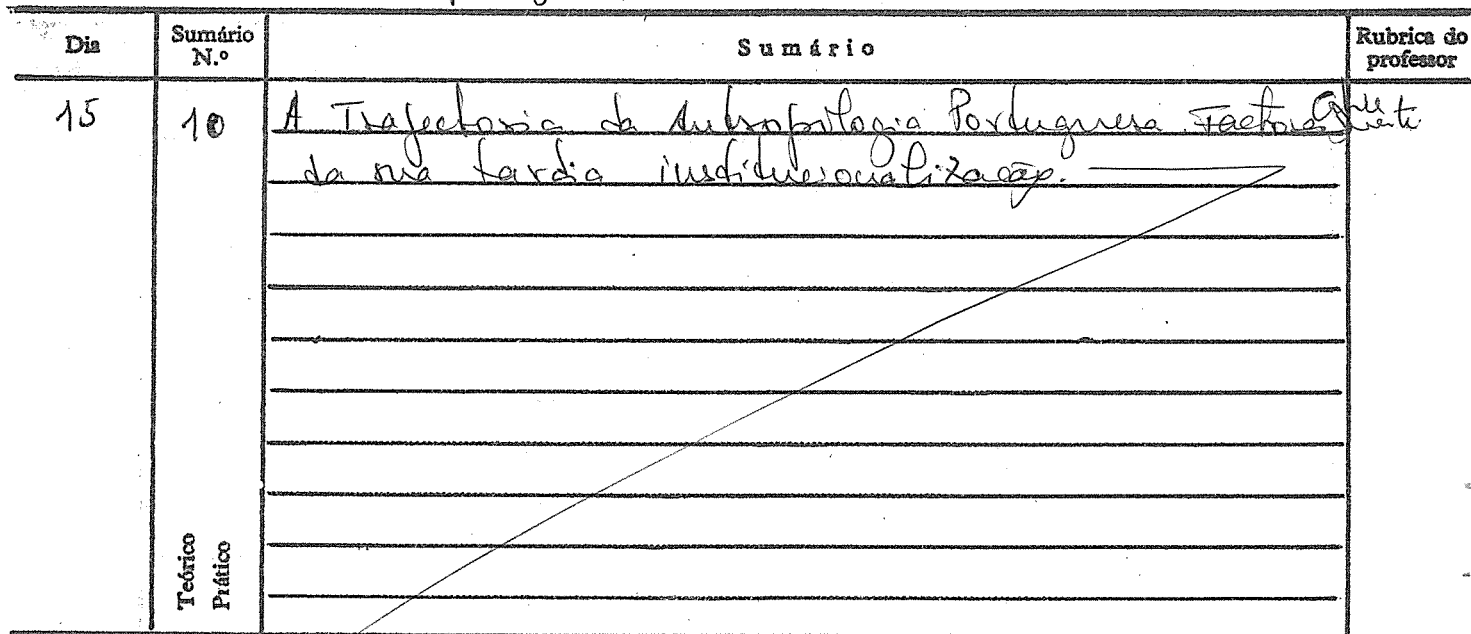 Dia Sumário N.º Sumário Rubrica do professor
15 10 A Trajectoria da Antropologia Portuguesa. Factores
da sua tardia institucionalização.
Teórico
Prático